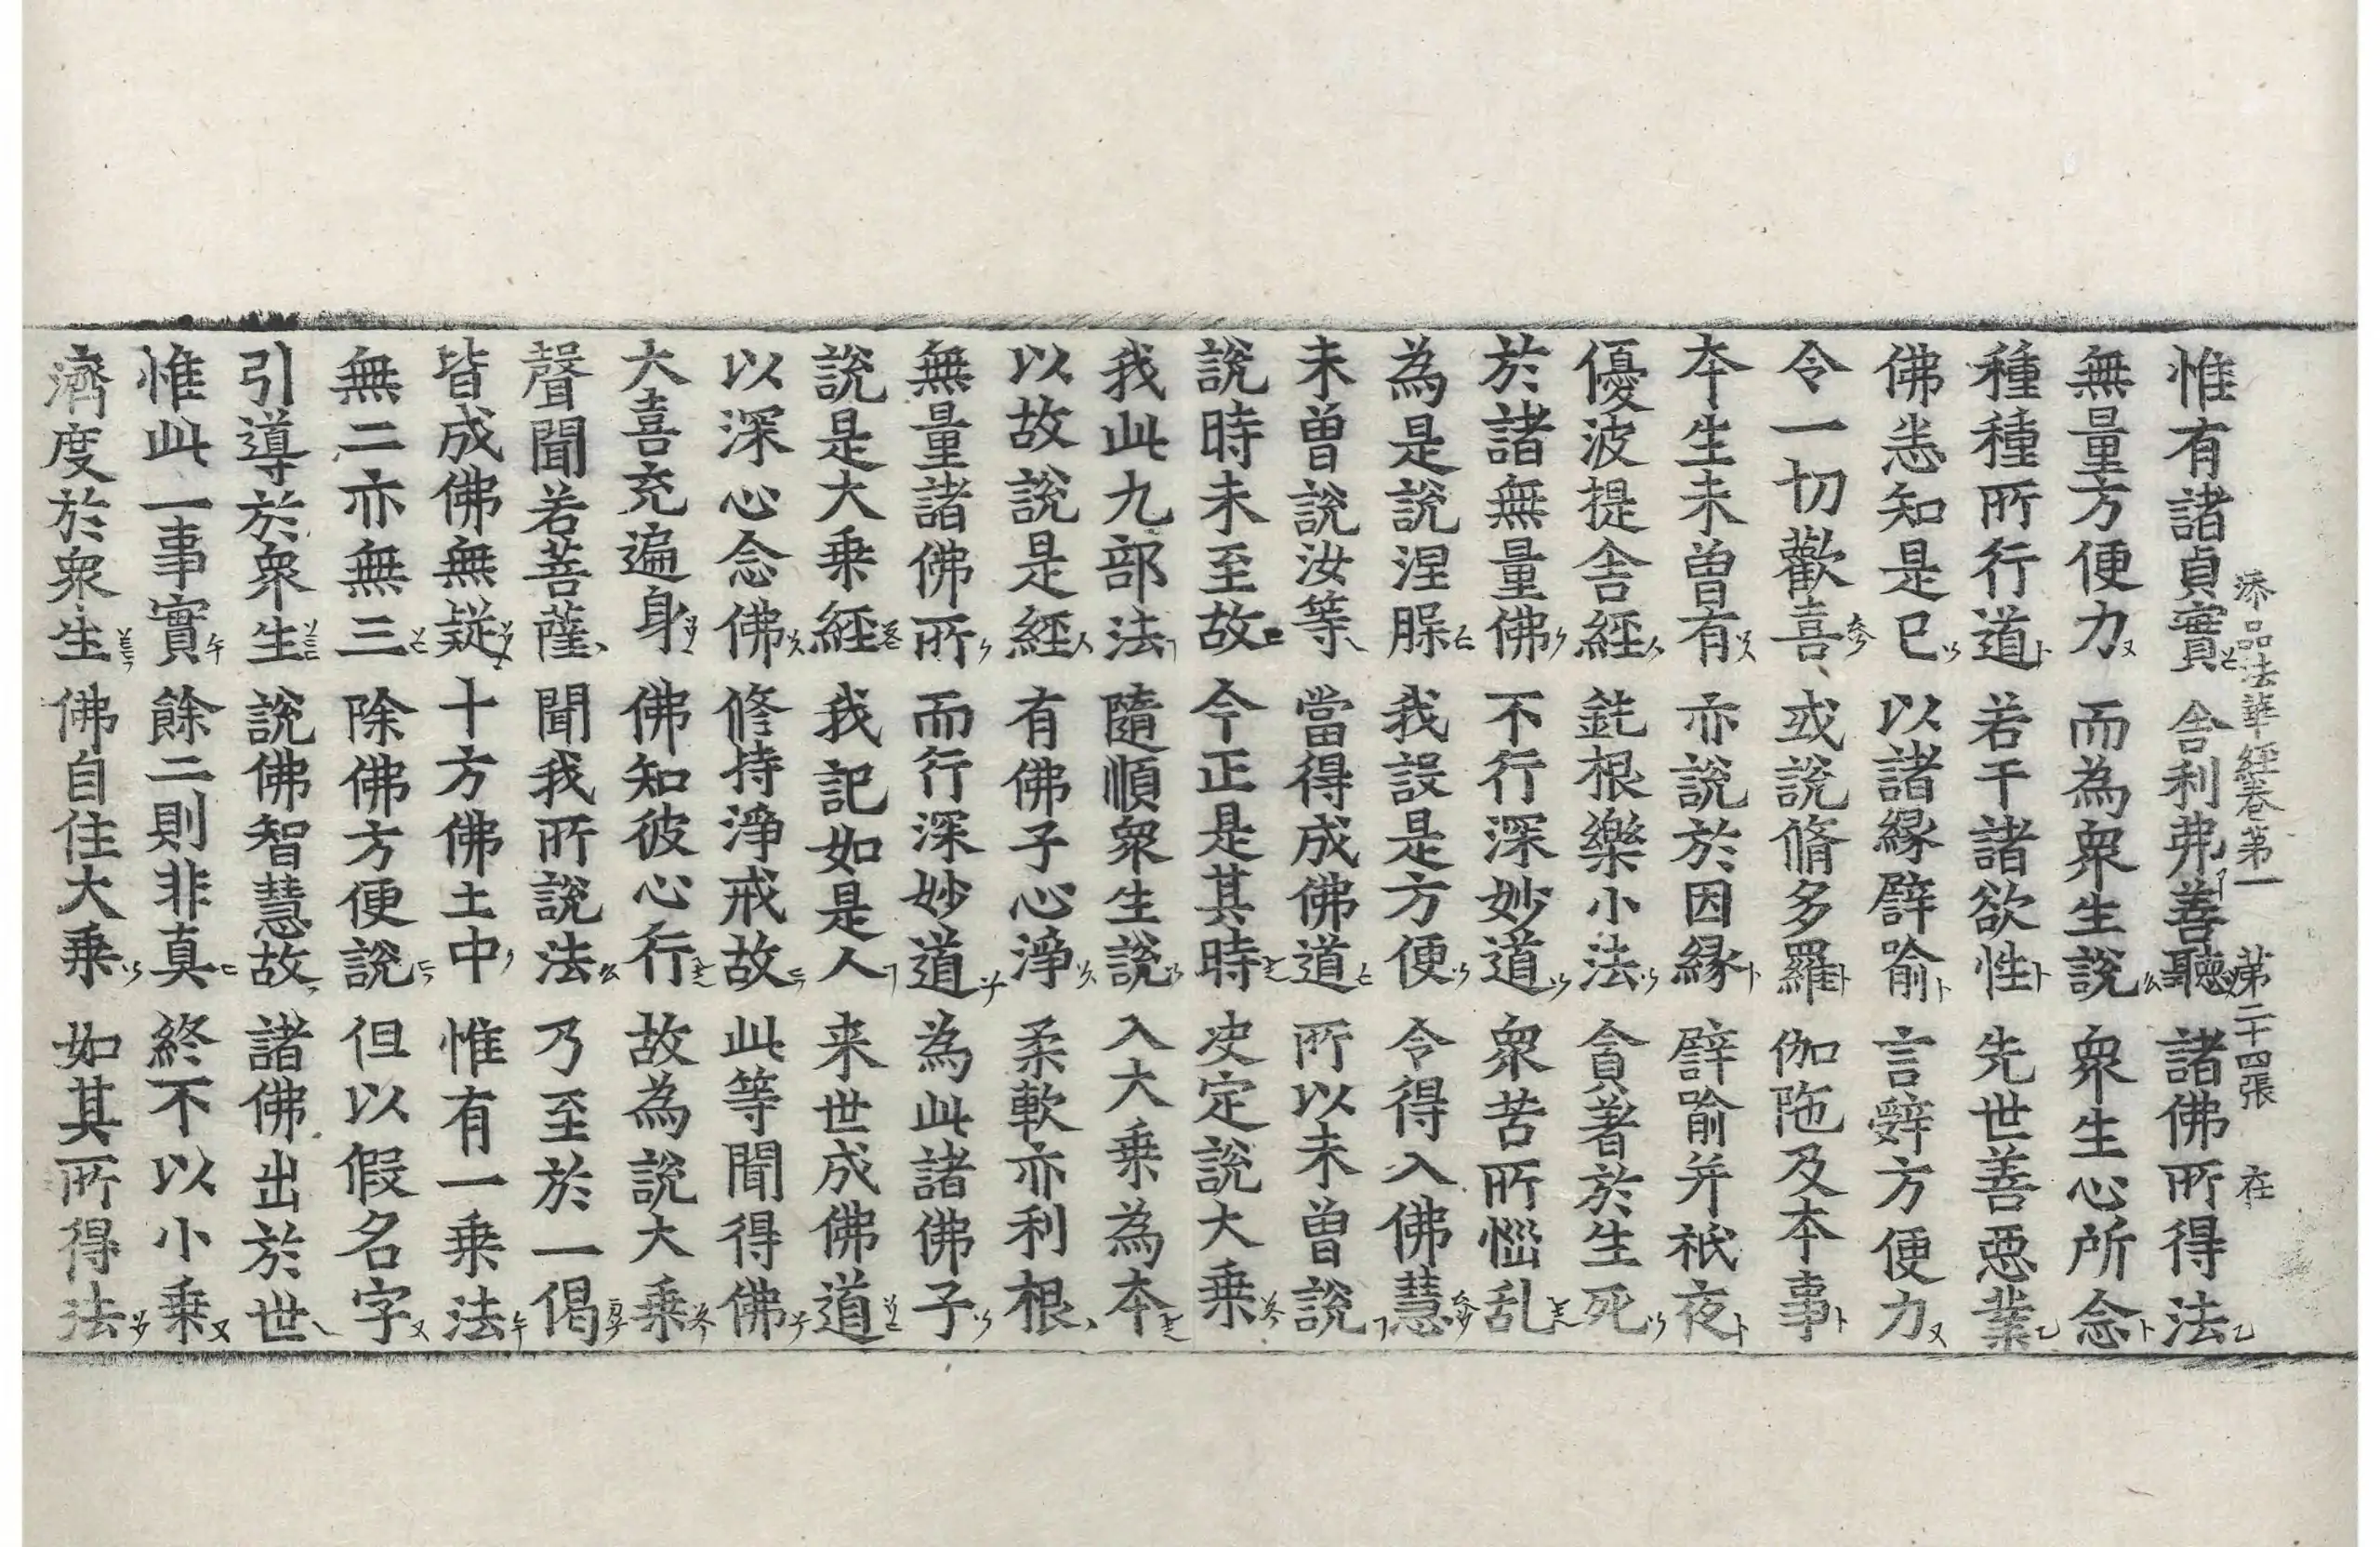 添品法華經卷第一　第二十四張　在
惟有諸貞實　舍利弗善聽　諸佛所得法
無量方便力　而為衆生說　衆生心所念
種種所行道　若干諸欲性　先世善惡業
佛悉知是已　以諸緣譬喻　言辭方便力
令一切歡喜　或說脩多羅　伽陁及本事
本生未曾有　亦說於因緣　譬喻并祇夜
優波提舍經　鈍根樂小法　貪著於生死
於諸無量佛　不行深妙道　衆苦所惱乱
為是說涅脲　我設是方便　令得入佛慧
未曾說汝等　當得成佛道　所以未曾說
說時未至故　今正是其時　决定說大乗
我此九部法　隨順衆生說　入大乗為本
以故說是經　有佛子心淨　柔軟亦利根
無量諸佛所　而行深妙道　為此諸佛子
說是大乗經　我記如是人　来世成佛道
以深心念佛　修持淨戒故　此等聞得佛
大喜充遍身　佛知彼心行　故為說大乗
聲聞若菩薩　聞我所說法　乃至於一偈
皆成佛無疑　十方佛土中　惟有一乗法
無二亦無三　除佛方便說　但以假名字
引導於衆生　說佛智慧故　諸佛出於世
惟此一事實　餘二則非真　終不以小乗
濟度於衆生　佛自住大乗　如其所得法